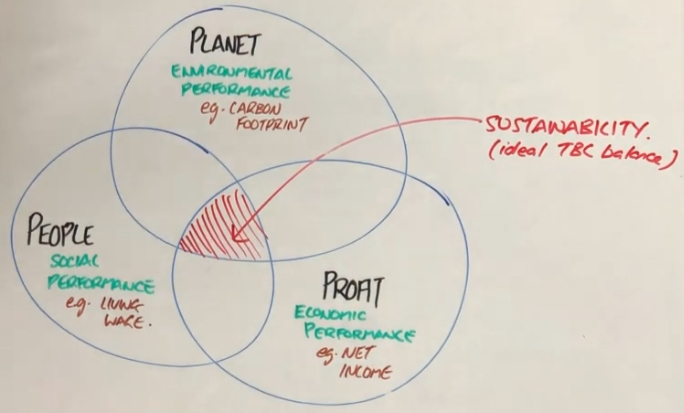 PLANET
ENVIRONMENTAL
PERFORMANCE
eg. CARBON
FOOTPRINT
SUSTAINABILITY.
(ideal TBL balance)
PEOPLE
SOCIAL
PERFORMANCE
e.g. LIVING
WAGE.
PROFIT
ECONOMIC
PERFORMANCE
eg. NET
INCOME